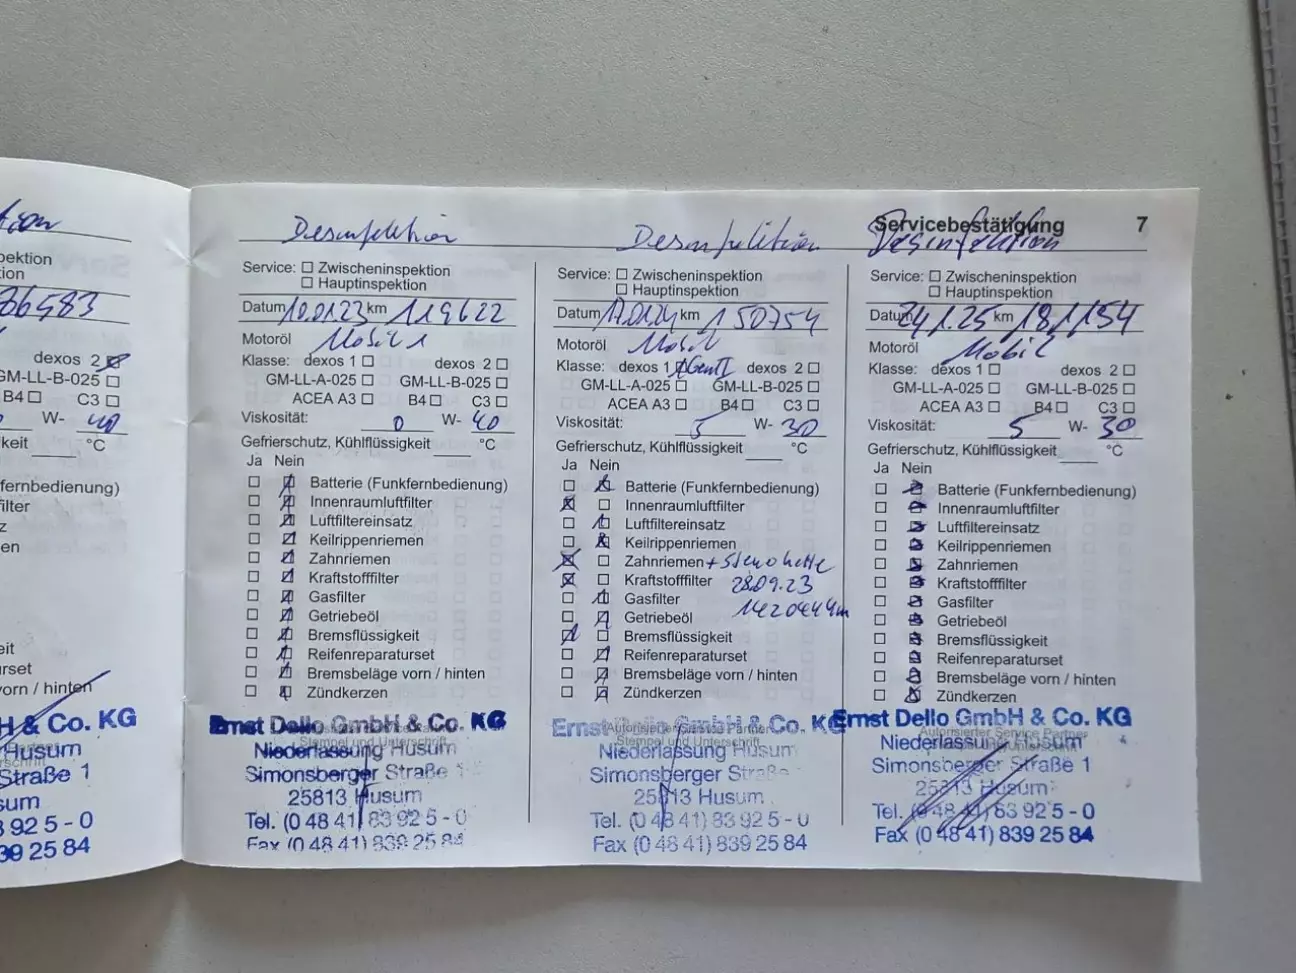 ktion
pektion
tion
86583
dexos 2 ☒
GM-LL-B-025 ☐
B4 ☐ C3 ☐
W- 40
keit °C
fernbedienung)
ilter
z
en
eit
rset
vorn / hinten
H & Co. KG
Husum
Straße 1
sum
3 92 5 - 0
39 25 84
Servicebestätigung 7
Desinfektion
Service: ☐ Zwischeninspektion
☐ Hauptinspektion
Datum 10.01.23 km 119622
Motoröl Mobil 1
Klasse: dexos 1 ☐ dexos 2 ☐
GM-LL-A-025 ☐ GM-LL-B-025 ☐
ACEA A3 ☐ B4 ☐ C3 ☐
Viskosität: 0 W- 40
Gefrierschutz, Kühlflüssigkeit °C
Ja Nein
☐ ☒ Batterie (Funkfernbedienung)
☐ ☒ Innenraumluftfilter
☐ ☒ Luftfiltereinsatz
☐ ☒ Keilrippenriemen
☐ ☒ Zahnriemen
☐ ☒ Kraftstofffilter
☐ ☒ Gasfilter
☐ ☒ Getriebeöl
☐ ☒ Bremsflüssigkeit
☐ ☒ Reifenreparaturset
☐ ☒ Bremsbeläge vorn / hinten
☐ ☒ Zündkerzen
Ernst Dello GmbH & Co. KG
Stempel und Unterschrift
Niederlassung Husum
Simonsberger Straße 1
25813 Husum
Tel. (0 48 41) 83 92 5 - 0
Fax (0 48 41) 839 25 84
Desinfektion
Service: ☐ Zwischeninspektion
☐ Hauptinspektion
Datum 17.01.24 km 150754
Motoröl Mobil
Klasse: dexos 1 Gen II dexos 2 ☐
GM-LL-A-025 ☐ GM-LL-B-025 ☐
ACEA A3 ☐ B4 ☐ C3 ☐
Viskosität: 5 W- 30
Gefrierschutz, Kühlflüssigkeit °C
Ja Nein
☐ ☒ Batterie (Funkfernbedienung)
☒ ☐ Innenraumluftfilter
☐ ☒ Luftfiltereinsatz
☐ ☒ Keilrippenriemen
☒ ☐ Zahnriemen +
☒ ☐ Kraftstofffilter 28.09.23
☐ ☒ Gasfilter
☐ ☒ Getriebeöl
☒ ☐ Bremsflüssigkeit
☐ ☒ Reifenreparaturset
☐ ☒ Bremsbeläge vorn / hinten
☐ ☒ Zündkerzen
Ernst Dello GmbH & Co. KG
Autorisierter Service Partner
Stempel und Unterschrift
Niederlassung Husum
Simonsberger Straße
25813 Husum
Tel. (0 48 41) 83 92 5 - 0
Fax (0 48 41) 839 25 84
Desinfektion
Service: ☐ Zwischeninspektion
☐ Hauptinspektion
Datum 24.1.25 km 181154
Motoröl Mobil
Klasse: dexos 1 ☐ dexos 2 ☐
GM-LL-A-025 ☐ GM-LL-B-025 ☐
ACEA A3 ☐ B4 ☐ C3 ☐
Viskosität: 5 W- 30
Gefrierschutz, Kühlflüssigkeit °C
Ja Nein
☐ ☒ Batterie (Funkfernbedienung)
☐ ☒ Innenraumluftfilter
☐ ☒ Luftfiltereinsatz
☐ ☒ Keilrippenriemen
☐ ☒ Zahnriemen
☐ ☒ Kraftstofffilter
☐ ☒ Gasfilter
☐ ☒ Getriebeöl
☐ ☒ Bremsflüssigkeit
☐ ☒ Reifenreparaturset
☐ ☒ Bremsbeläge vorn / hinten
☐ ☒ Zündkerzen
Ernst Dello GmbH & Co. KG
Autorisierter Service Partner
Niederlassung Husum
Simonsberger Straße 1
25813 Husum
Tel. (0 48 41) 83 92 5 - 0
Fax (0 48 41) 839 25 84